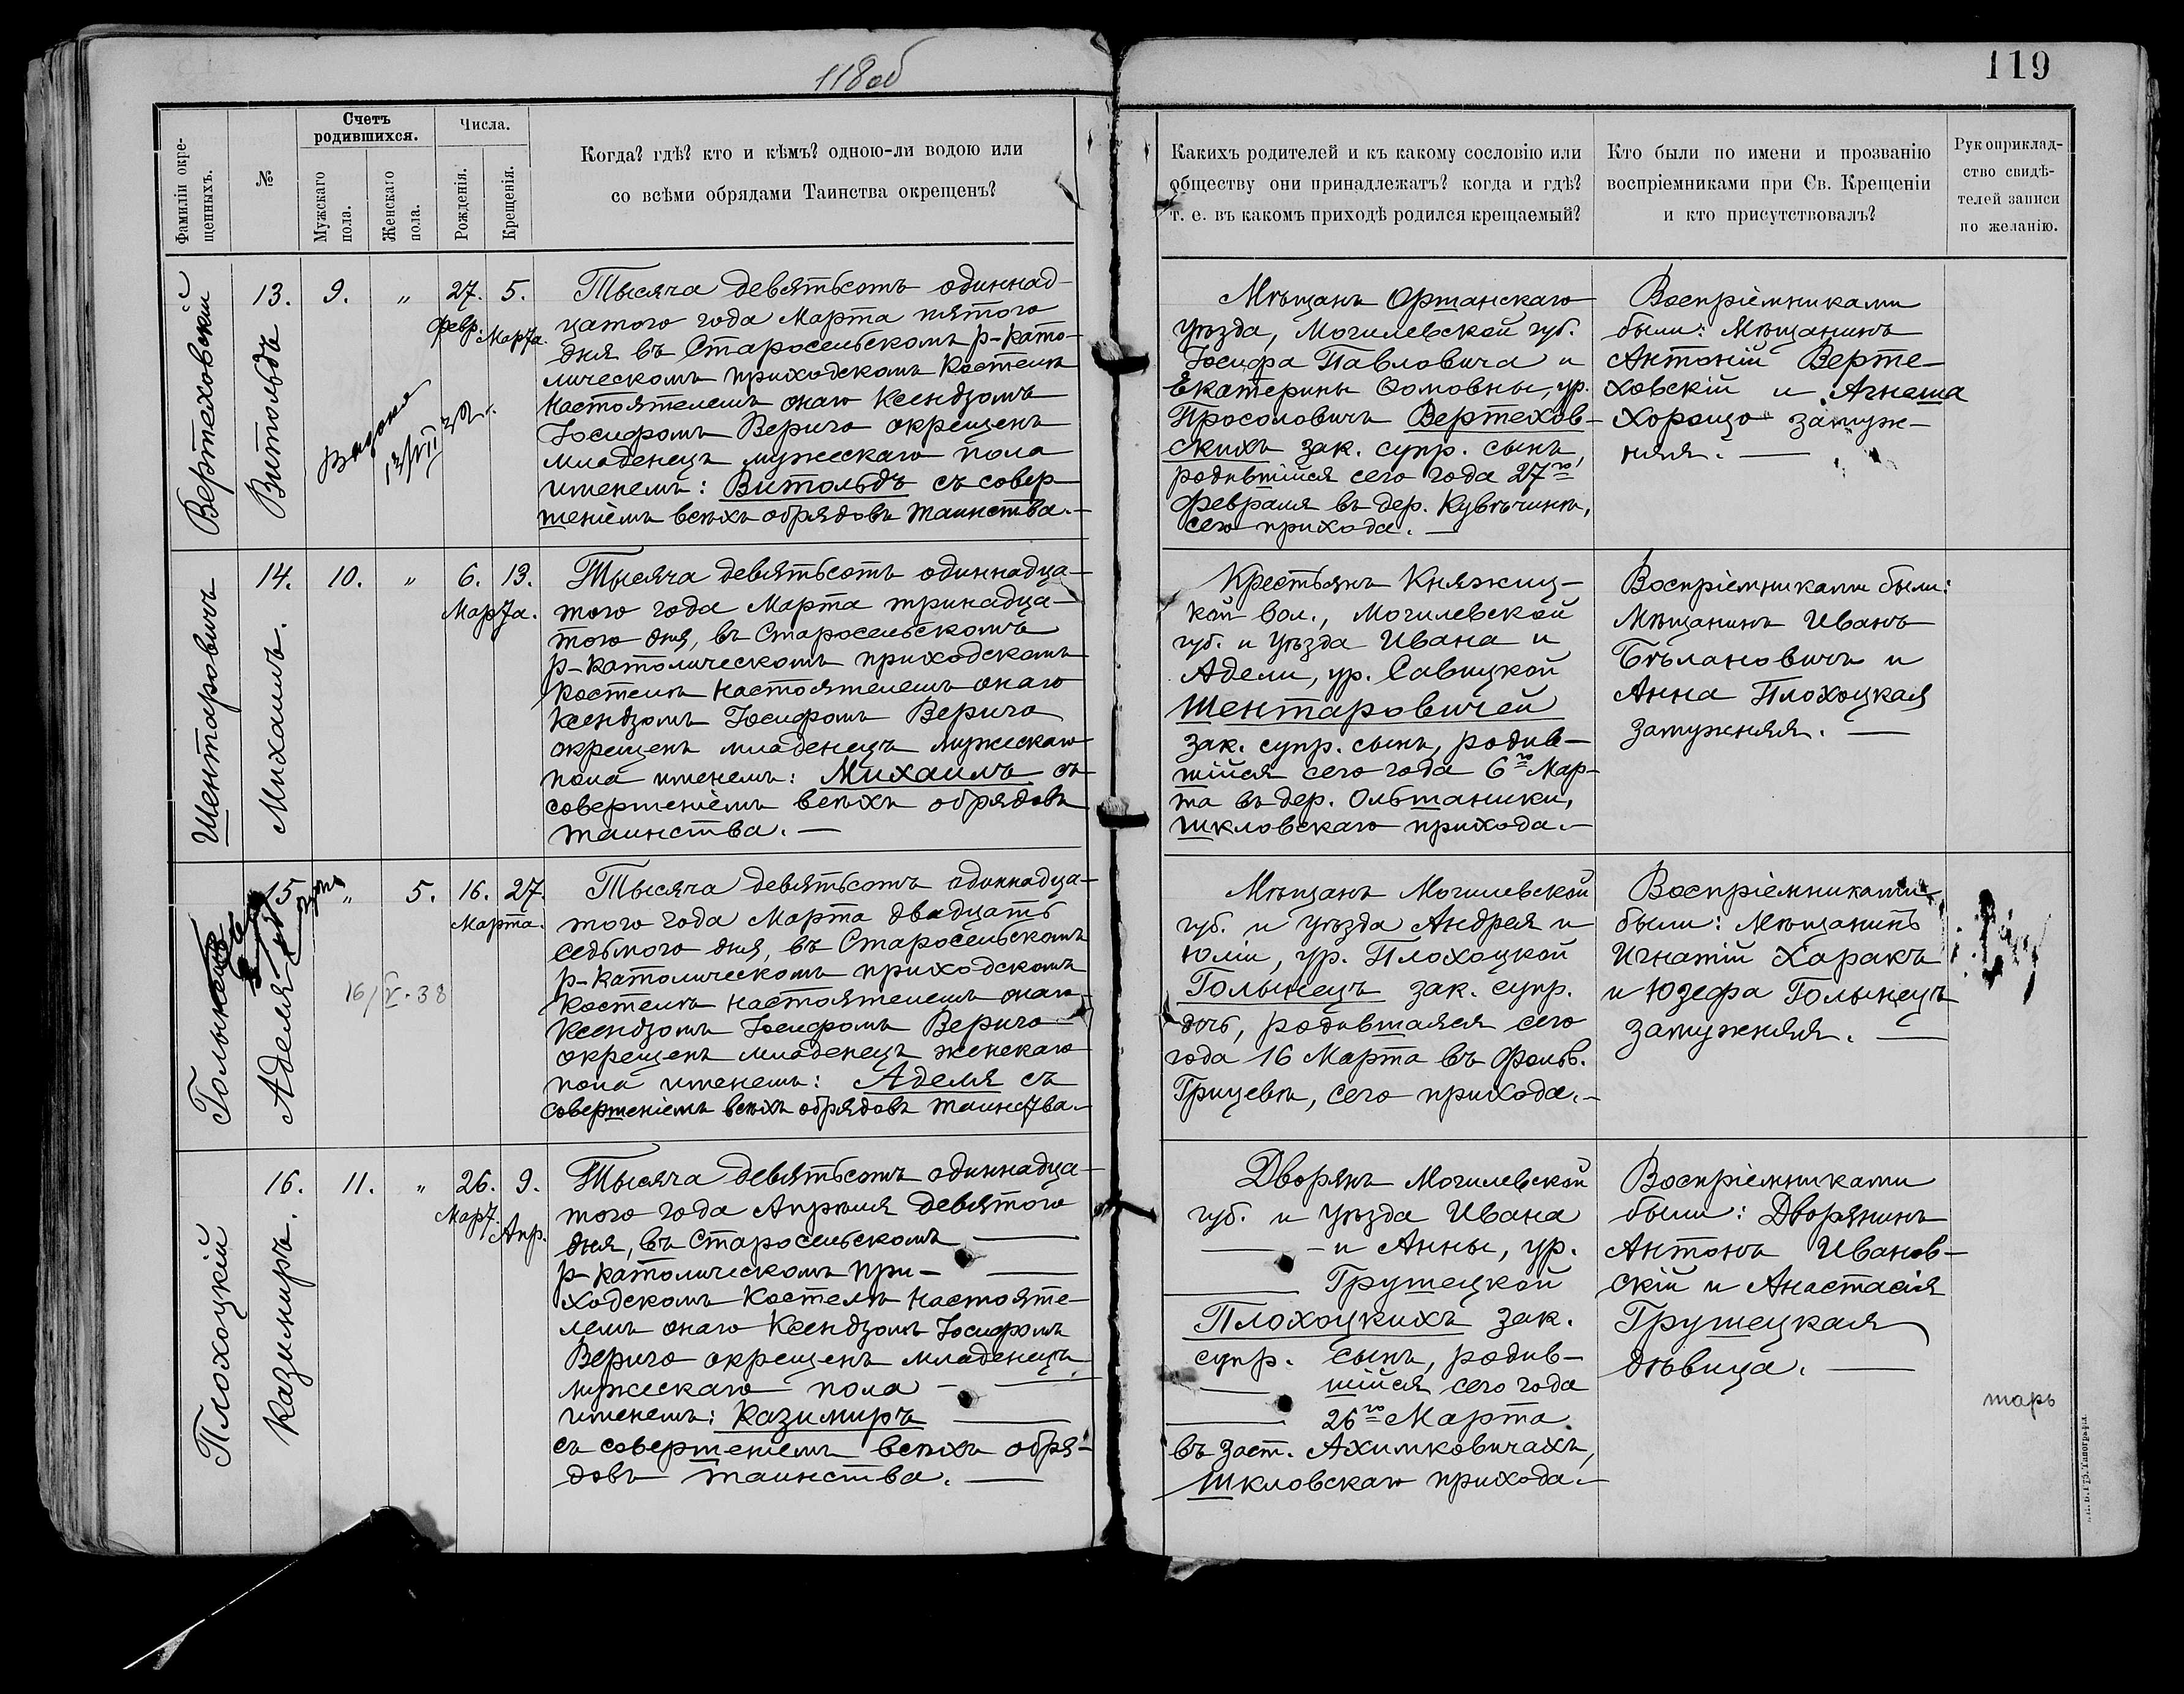 118об
119
Фамиліи окре-
щенныхъ.
№
Счетъ
родившихся.
Мужскаго
пола.
Женскаго
пола.
Числа.
Рожденія.
Крещенія.
Когда? гдѣ? кто и кѣмъ? одною-ли водою или
со всѣми обрядами Таинства окрещенъ?
Какихъ родителей и къ какому сословію или
обществу они принадлежатъ? когда и гдѣ?
т. е. въ какомъ приходѣ родился крещаемый?
Кто были по имени и прозванію
воспріемниками при Св. Крещеніи
и кто присутствовалъ?
Рукоприклад-
ство свидѣ-
телей записи
по желанію.
Вертеховскій
13.
Витольдъ
9.
„
27.
Февр.
5.
Марта.
13/VII 32 г.
Тысяча девятьсотъ одиннад-
цатаго года Марта пятого
дня въ Старосельскомъ р-като-
лическомъ приходскомъ Костелѣ
Настоятелемъ онаго Ксендзомъ
Іосифомъ Верыго окрещенъ
младенецъ мужескаго пола
именемъ: Витольдъ съ совер-
шеніемъ всѣхъ обрядовъ таинства.—
Мѣщанъ Оршанскаго
уѣзда, Могилевской губ.
Іосифа Павловича и
Екатерины Ѳомовны, ур.
Просоловичъ Вертехов-
скихъ зак. супр. сынъ,
родившійся сего года 27го
Февраля въ дер. Кувѣчинѣ,
сего прихода.—
Воспріемниками
были: Мѣщанинъ
Антоній Верте-
ховскій и Агнеша
Хорошо замуж-
няя.—
Шентаровичъ
14.
Михаилъ.
10.
„
6.
13.
Марта.
Тысяча девятьсотъ одиннадца-
того года Марта тринадца-
того дня, въ Старосельскомъ
р-католическомъ приходскомъ
костелѣ Настоятелемъ онаго
Ксендзомъ Іосифомъ Верыго
окрещенъ младенецъ мужескаго
пола именемъ: Михаилъ съ
совершеніемъ всѣхъ обрядовъ
таинства.—
Крестьянъ Княжиц-
кой вол., Могилевской
губ. и уѣзда Ивана и
Адели, ур. Савицкой
Шентаровичей
зак. супр. сынъ, родив-
шійся сего года 6го Мар-
та въ дер. Ольшаники,
Шкловскаго прихода.—
Воспріемниками были:
Мѣщанинъ Иванъ
Бѣлановичъ и
Анна Плохоцкая
замужняя.—
15
Аделя
„
5.
16.
27.
Марта.
16/V.38
Тысяча девятьсотъ одиннадца-
того года Марта двадцать
седьмого дня, въ Старосельскомъ
р-католическомъ приходскомъ
Костелѣ Настоятелемъ онаго
Ксендзомъ Іосифомъ Верыго
окрещенъ младенецъ женскаго
пола именемъ: Аделя съ
совершеніемъ всѣхъ обрядовъ таинства.—
Мѣщанъ Могилевской
губ. и уѣзда Андрея и
Юліи, ур. Плохоцкой
Голынецъ зак. супр.
дочь, родившаяся сего
года 16 Марта въ фольв.
Грицевѣ, сего прихода.—
Воспріемниками
были: Мѣщанинъ
Игнатій Харакъ
и Юзефа Голынецъ
замужняя.—
Плохоцкій
16.
Казимиръ.
11.
„
26.
Март.
9.
Апр.
Тысяча девятьсотъ одиннадца-
того года Апрѣля девятого
дня, въ Старосельскомъ
р-католическомъ при-
ходскомъ Костелѣ Настояте-
лемъ онаго Ксендзомъ Іосифомъ
Верыго окрещенъ младенецъ
мужескаго пола —
именемъ: Казимиръ
съ совершеніемъ всѣхъ обря-
довъ таинства.—
Дворянъ Могилевской
губ. и уѣзда Ивана
— и Анны, ур.
Грушецкой
Плохоцкихъ зак.
супр. сынъ, родив-
шійся сего года
26го Марта
въ заст. Ахимковичахъ,
Шкловскаго прихода.—
Воспріемниками
были: Дворянинъ
Антонъ Иванов-
скій и Анастасія
Грушецкая
дѣвица.—
тарь